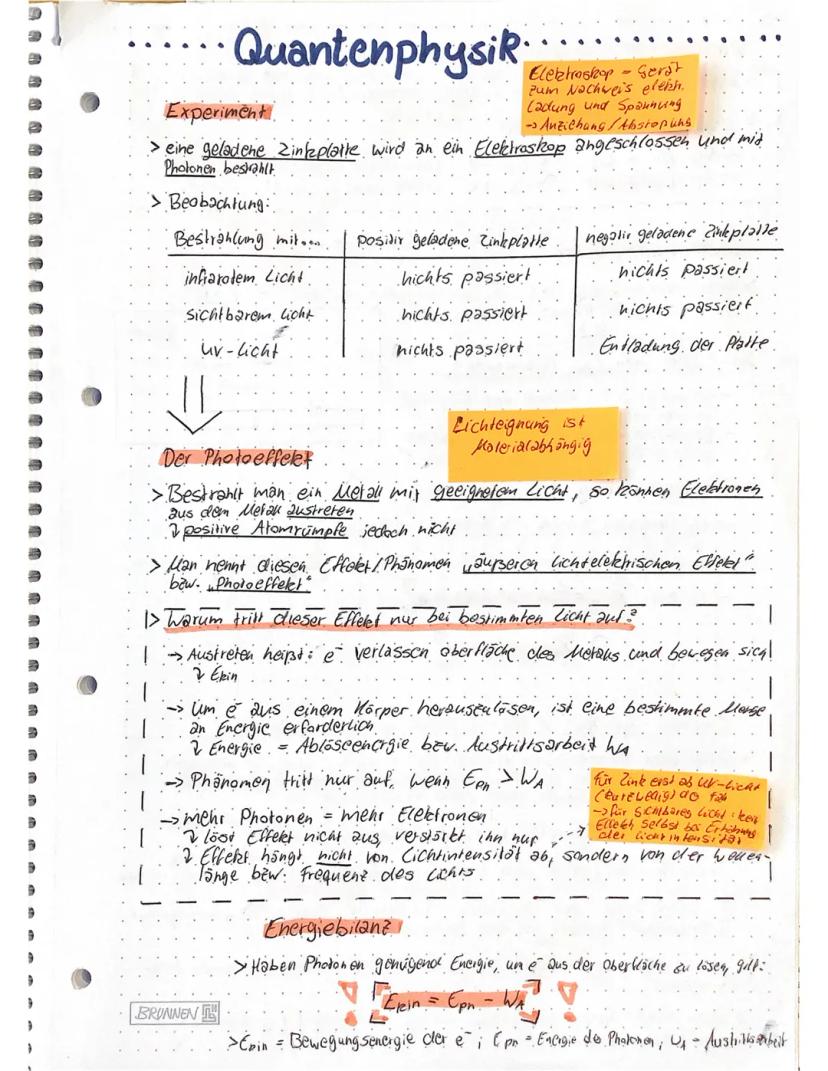 Quantenphysik
Elektroskop = Gerät
zum Nachweis elektr.
Ladung und Spannung
→ Anziehung / Abstoßung
Experiment
> eine geladene Zinkplatte wird an ein Elektroskop angeschlossen und mit
Photonen bestrahlt
> Beobachtung:
Bestrahlung mit... positiv geladene Zinkplatte negativ geladene Zinkplatte
infrarotem Licht nichts passiert nichts passiert
sichtbarem Licht nichts passiert nichts passiert
UV-Licht nichts passiert Entladung der Platte
Lichteignung ist
Materialabhängig
Der Photoeffekt
> Bestrahlt man ein Metall mit geeignetem Licht, so können Elektronen
aus dem Metall austreten
↴ positive Atomrümpfe jedoch nicht
> Man nennt diesen Effekt/Phänomen „äußeren lichtelektrischen Effekt"
bzw. „Photoeffekt"
> Warum tritt dieser Effekt nur bei bestimmten Licht auf?
→ Austreten heißt: e⁻ verlassen Oberfläche des Metalls und bewegen sich
↴ Ekin
→ Um e⁻ aus einem Körper herauszulösen, ist eine bestimmte Menge
an Energie erforderlich
↴ Energie = Ablöseenergie bzw. Austrittsarbeit WA
→ Phänomen tritt nur auf, wenn Eph > WA
für Zink erst ab UV-Licht
der Fall
→ für sichtbares Licht: kein
Effekt selbst bei Erhöhung
der Lichtintensität
→ mehr Photonen = mehr Elektronen
↴ löst Effekt nicht aus, verstärkt ihn nur
↴ Effekt hängt nicht von Lichtintensität ab, sondern von der Wellen-
länge bzw. Frequenz des Lichts
Energiebilanz
> Haben Photonen genügend Energie, um e⁻ aus der Oberfläche zu lösen, gilt:
! Ekin = Eph - WA !
BRUNNEN
> Ekin = Bewegungsenergie der e⁻; Eph = Energie der Photonen; WA = Austrittsarbeit